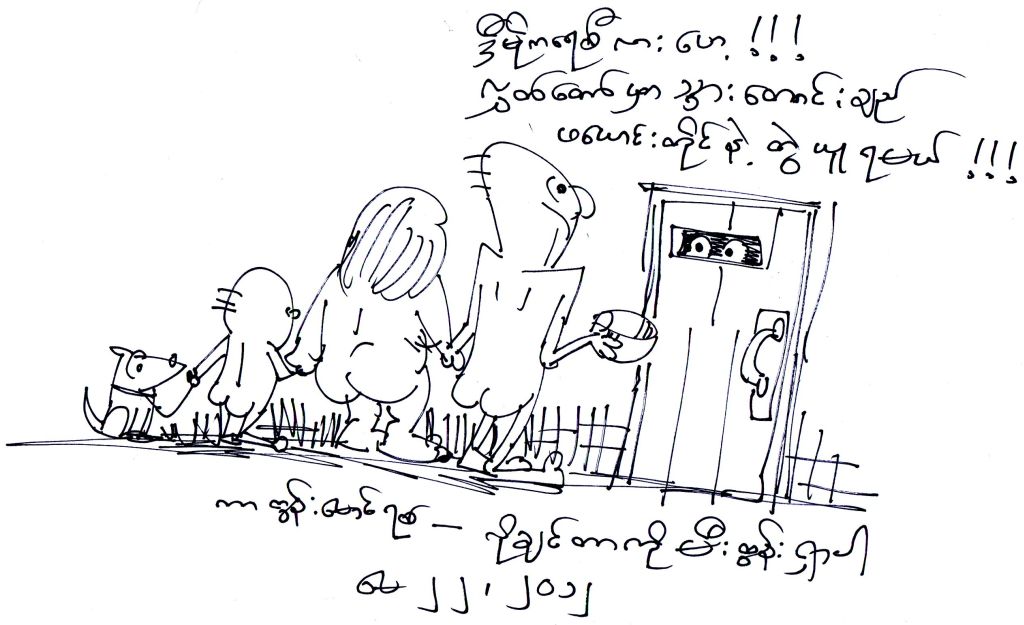 ဒီမိုကရေစီ လား ဟေ့ !!!
လွှတ်တော် မှာ သွား တောင်း ချည်
ဖယောင်းတိုင် နဲ့ တွဲ ယူ ရမယ် !!!
ကာတွန်း မောင်ရစ် — လိုချင်တာကို မီးထွန်း ရှာပါ
မေ ၂၂၊ ၂၀၁၂